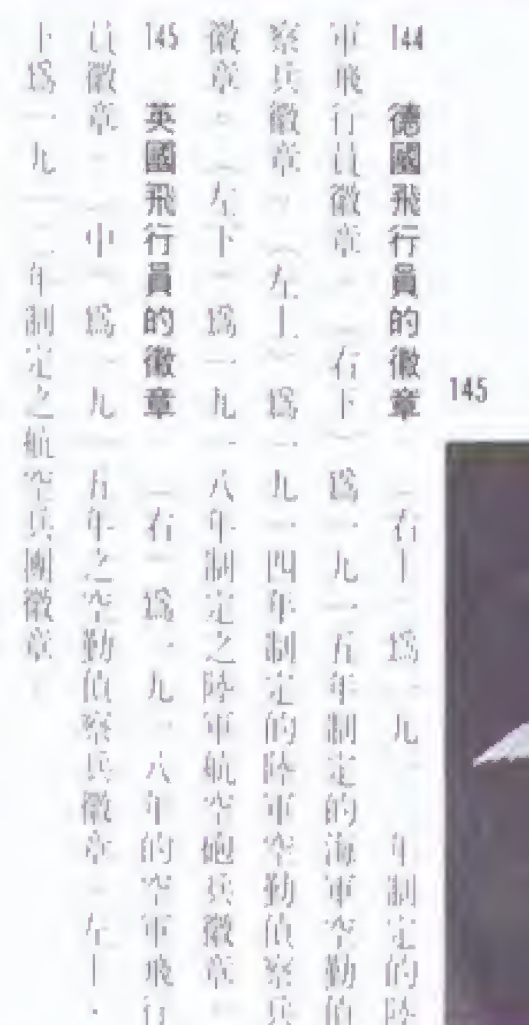 144 德國飛行員的徽章 （右上）爲一九 年制定的陸
軍飛行員徽章。（右下）爲一九一五年制定的海軍空勤偵
察兵徽章。（左上）爲一九一四年制定的陸軍空勤偵察兵
徽章。（左下）爲一九一八年制定之陸軍航空砲兵徽章。
145 英國飛行員的徽章 （右）爲一九一八年的空軍飛行
員徽章。（中）爲一九一五年之空勤偵察兵徽章。左上、
下爲一九一二年制定之航空兵團徽章。
145